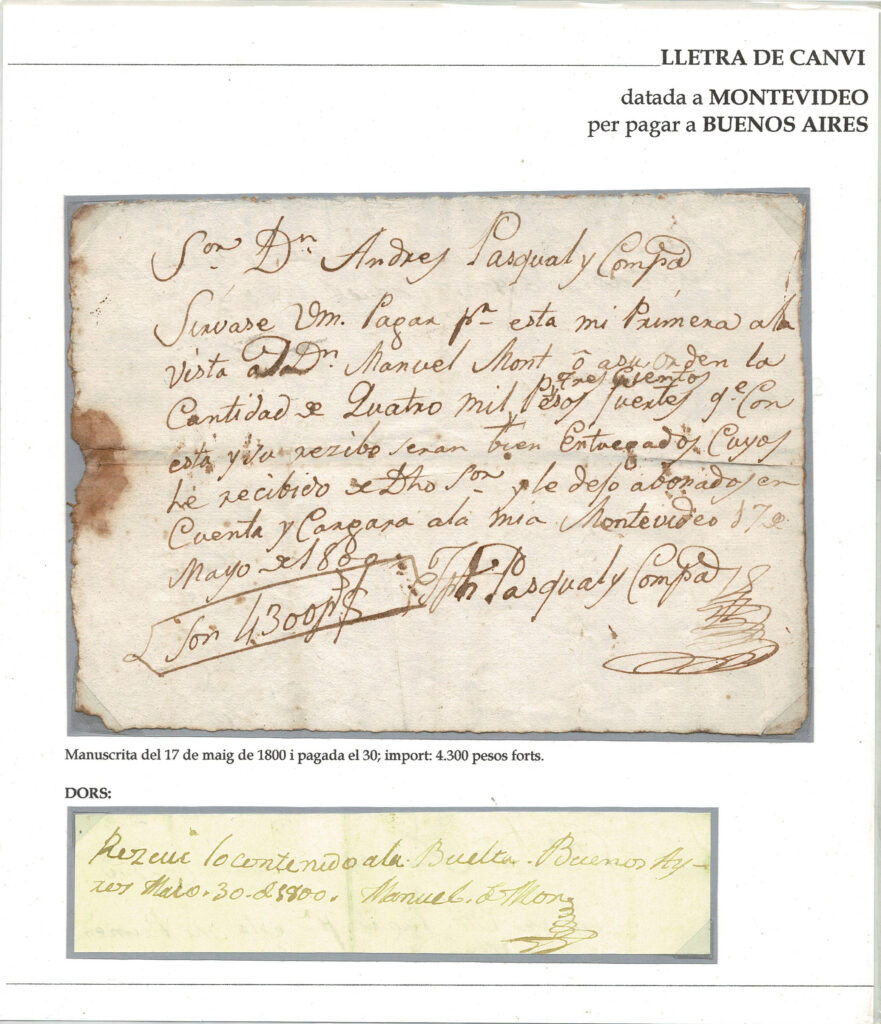 LLETRA DE CANVI
datada a MONTEVIDEO
per pagar a BUENOS AIRES
Sor. Dn. Andres Pasqual y Compa
Sirvase Vm. Pagar pr esta mi Primera a la
vista a Dn. Manuel Mont ô asu orden la
ps. trescientos
Cantidad de Quatro mil Pesos fuertes q.e Con
esta y su rezibo seran bien Entregados Cuyos
he recibido de Dho Sor y le dejo abonados en
Cuenta y Cargara ala mia Montevideo 17 de
Mayo de 1800
Son 4300 ps Jph Pasqual y Compa
Manuscrita del 17 de maig de 1800 i pagada el 30; import: 4.300 pesos forts.
DORS:
Rezeui lo contenido ala Buelta. Buenos Ay-
res Maio. 30. d 1800. Manuel. d Mon